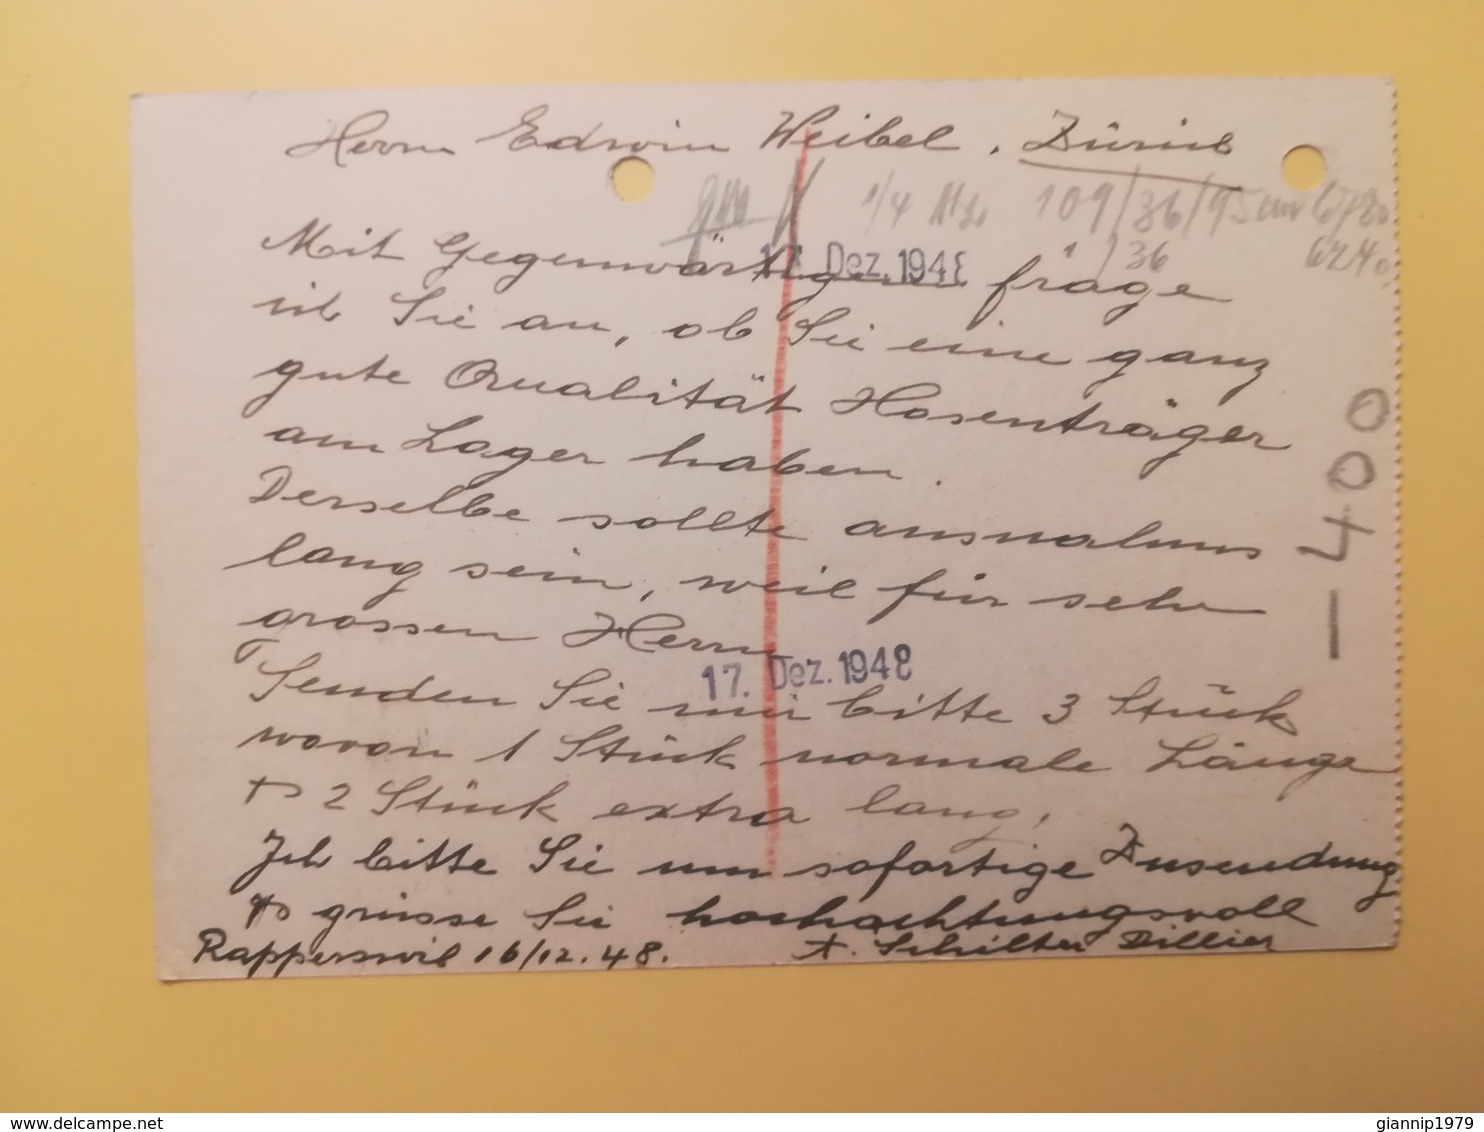 Herrn Edwin Weibel, Zürich
1/4 109/36/95 cm 6780
1 / 36 6240
17. Dez. 1948
Mit Gegenwärtigem frage
ich Sie an, ob Sie eine ganz
gute Qualität Hosenträger
am Lager haben.
Derselbe sollte ausnahms
lang sein, weil für sehr
grossen Herrn
17. Dez. 1948
Senden Sie mir bitte 3 Stück
wovon 1 Stück normale Länge
& 2 Stück extra lang,
Ich bitte Sie um sofortige Zusendung
& grüsse Sie hochachtungsvoll
Rapperswil 16/12.48. A. Schilter Dillier
— 400
www.delcampe.net
giannip1979